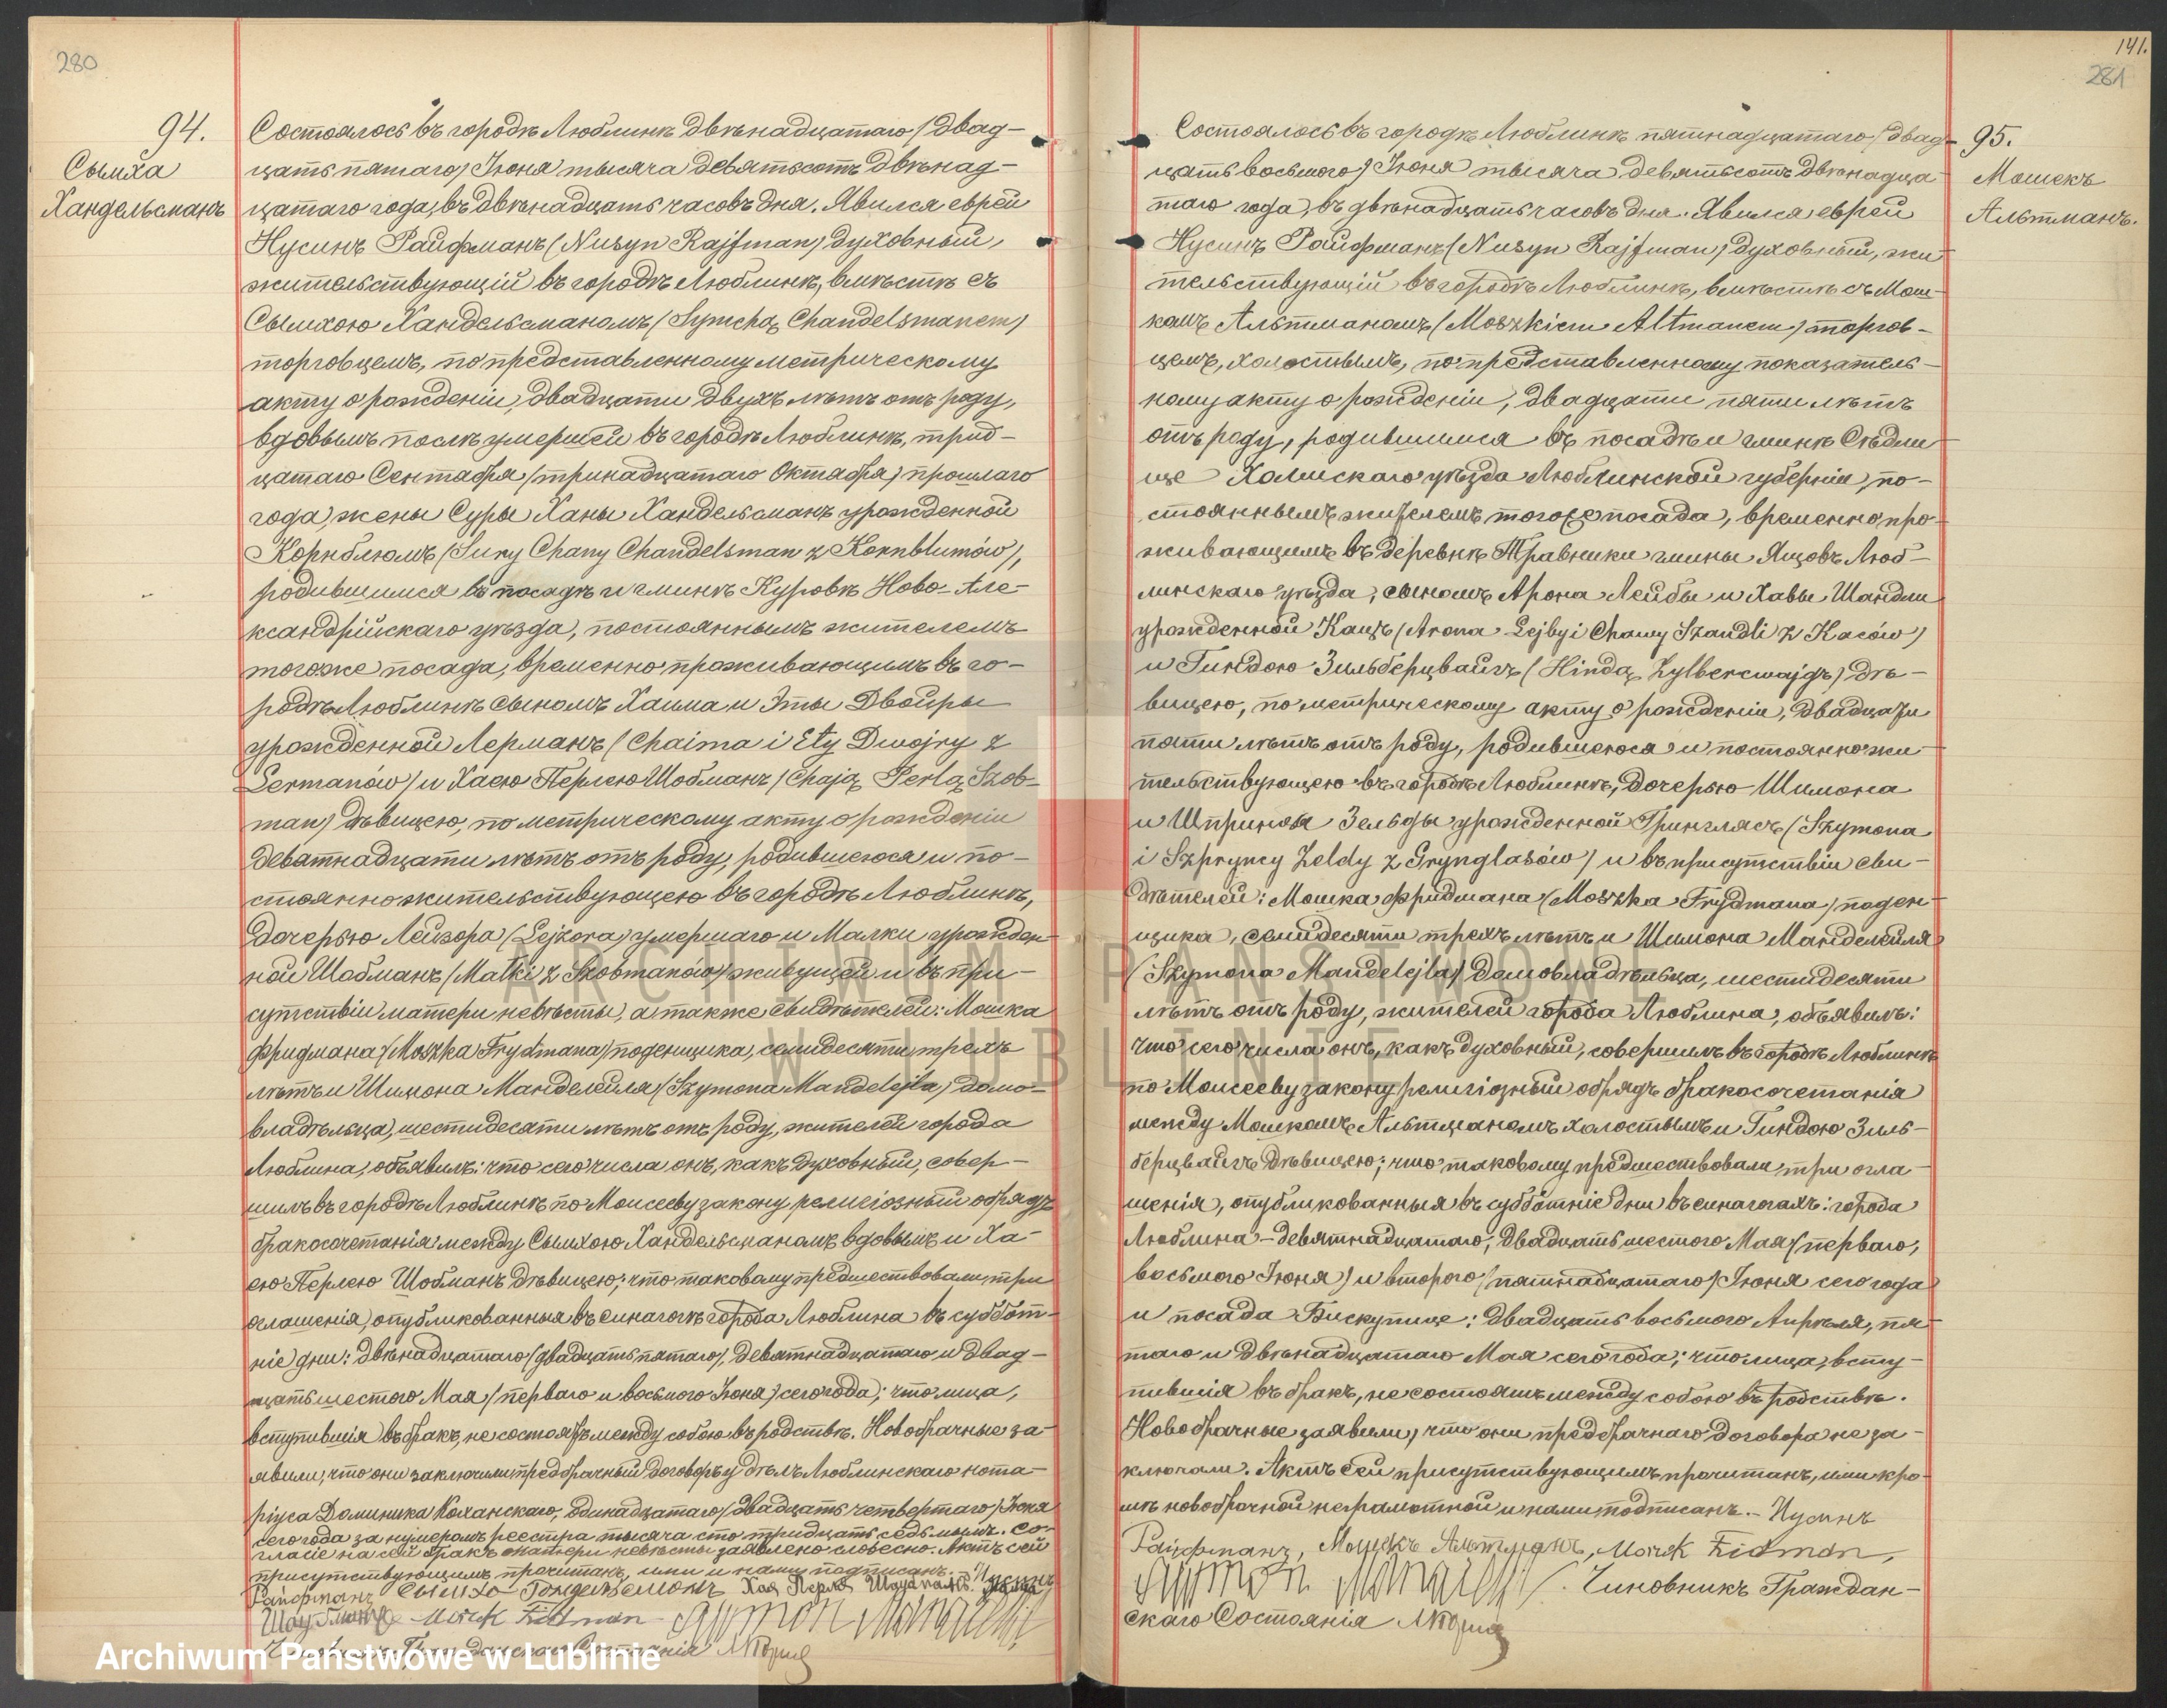 280
94.
Сымха
Хандельсманъ
Состоялось въ городѣ Люблинѣ двѣнадцатаго (двад-
цать пятаго) Іюня тысяча девятьсотъ двѣнад-
цатаго года, въ двѣнадцать часовъ дня. Явился еврей
Нусинъ Райфманъ (Nusyn Rajfman) духовный,
жительствующій въ городѣ Люблинѣ, вмѣстѣ съ
Сымхою Хандельсманомъ (Symchą Chandelsmanem)
торговцемъ, по представленному метрическому
акту о рожденіи, двадцати двухъ лѣтъ отъ роду,
вдовымъ послѣ умершей въ городѣ Люблинѣ, трид-
цатаго Сентября (тринадцатаго Октября) прошлаго
года, жены Суры Ханы Хандельсманъ урожденной
Корнблюмъ (Sury Chany Chandelsman z Kornblumów),
родившимся въ посадѣ и гминѣ Куровѣ Ново-Але-
ксандрійскаго уѣзда, постояннымъ жителемъ
тогоже посада, временно проживающимъ въ го-
родѣ Люблинѣ сыномъ Хаима и Эты Двойры
урожденной Лерманъ (Chaima i Ety Dwojry z
Lermanów) и Хаею Перлею Шобманъ (Chają Perlą Szob-
man) дѣвицею, по метрическому акту о рожденіи
девятнадцати лѣтъ отъ роду, родившеюся и по-
стоянно жительствующею въ городѣ Люблинѣ,
дочерью Лейзора (Lejzora) умершаго и Малки урожден-
ной Шобманъ (Malki z Szobmanów) живущей и въ при-
сутствіи матери невѣсты, а также свидѣтелей: Мошка
Фридмана (Moszka Frydmana) поденщика, семидесяти трехъ
лѣтъ и Шимона Манделейля (Szymona Mandelejla) домо-
владѣльца, шестидесяти лѣтъ отъ роду, жителей города
Люблина, объявилъ: что сего числа онъ, какъ духовный, совер-
шилъ въ городѣ Люблинѣ по Моисееву закону религіозный обрядъ
бракосочетанія между Сымхою Хандельсманомъ вдовымъ и Ха-
ею Перлею Шобманъ дѣвицею; что таковому предшествовали три
оглашенія, опубликованныя въ синагогѣ города Люблина въ суббот-
ніе дни: двѣнадцатаго (двадцать пятаго), девятнадцатаго и двад-
цать шестого Мая (перваго и восьмого Іюня) сего года; что лица,
вступившія въ бракъ, не состоятъ между собою въ родствѣ. Новобрачные за-
явили, что они заключили предбрачный договоръ у дѣлъ Люблинскаго нота-
ріуса Доминика Коханскаго, одинадцатаго (двадцать четвертаго) Іюня
сего года за нумеромъ реестра тысяча сто тридцать седьмымъ. Со-
гласіе на сей бракъ матери невѣсты заявлено словесно. Актъ сей
присутствующимъ прочитанъ, ими и нами подписанъ. - Нусинъ
Райфманъ Сымхо Гондельсмонъ Хая Перля
Чиновникъ Гражданскаго Состоянія
Archiwum Państwowe w Lublinie
141.
281
95.
Мошекъ
Альтманъ.
Состоялось въ городѣ Люблинѣ пятнадцатаго (двад-
цать восьмого) Іюня тысяча девятьсотъ двѣнадца-
таго года, въ двѣнадцать часовъ дня. Явился еврей
Нусинъ Райфманъ (Nusyn Rajfman) духовный, жи-
тельствующій въ городѣ Люблинѣ, вмѣстѣ съ Мош-
комъ Альтманомъ (Moszkiem Altmanem) торгов-
цемъ, холостымъ, по представленному показатель-
ному акту о рожденіи, двадцати пяти лѣтъ
отъ роду, родившимся въ посадѣ и гминѣ Сѣдли-
ще Холмскаго уѣзда Люблинской губерніи, по-
стояннымъ жителемъ тогоже посада, временно про-
живающимъ въ деревнѣ Травники гмины Ящовъ Люб-
линскаго уѣзда, сыномъ Арона Лейбы и Хавы Шандли
урожденной Кацъ (Arona Lejby i Chawy Szandli z Kaców)
и Гиндою Зильберцвайгъ (Hindą Zylbercwajgъ) дѣ-
вицею, по метрическому акту о рожденіи, двадцати
пяти лѣтъ отъ роду, родившеюся и постоянно жи-
тельствующею въ городѣ Люблинѣ, дочерью Шимона
и Шпринцы Зельды урожденной Гринглясъ (Szymona
i Szpryncy Zeldy z Grynglasów) и въ присутствіи сви-
дѣтелей: Мошка Фридмана (Moszka Frydmana) поден-
щика, семидесяти трехъ лѣтъ и Шимона Манделейля
(Szymona Mandelejla) домовладѣльца, шестидесяти
лѣтъ отъ роду, жителей города Люблина, объявилъ:
что сего числа онъ, какъ духовный, совершилъ въ городѣ Люблинѣ
по Моисееву закону религіозный обрядъ бракосочетанія
между Мошкомъ Альтманомъ холостымъ и Гиндою Зиль-
берцвайгъ дѣвицею; что таковому предшествовали три огла-
шенія, опубликованныя въ субботніе дни въ синагогахъ: города
Люблина - девятнадцатаго, двадцать шестого Мая (перваго,
восьмого Іюня) и второго (пятнадцатаго) Іюня сего года
и посада Бискупице: двадцать восьмого Апрѣля, пя-
таго и двѣнадцатаго Мая сего года; что лица, всту-
пившія въ бракъ, не состоятъ между собою въ родствѣ.
Новобрачные заявили, что они предбрачнаго договора не за-
ключали. Актъ сей присутствующимъ прочитанъ, ими кро-
мѣ новобрачной неграмотной и нами подписанъ. - Нусинъ
Райфманъ, Мошекъ Альтманъ,
Чиновникъ Граждан-
скаго Состоянія
ARCHIWUM PAŃSTWOWE
W LUBLINIE